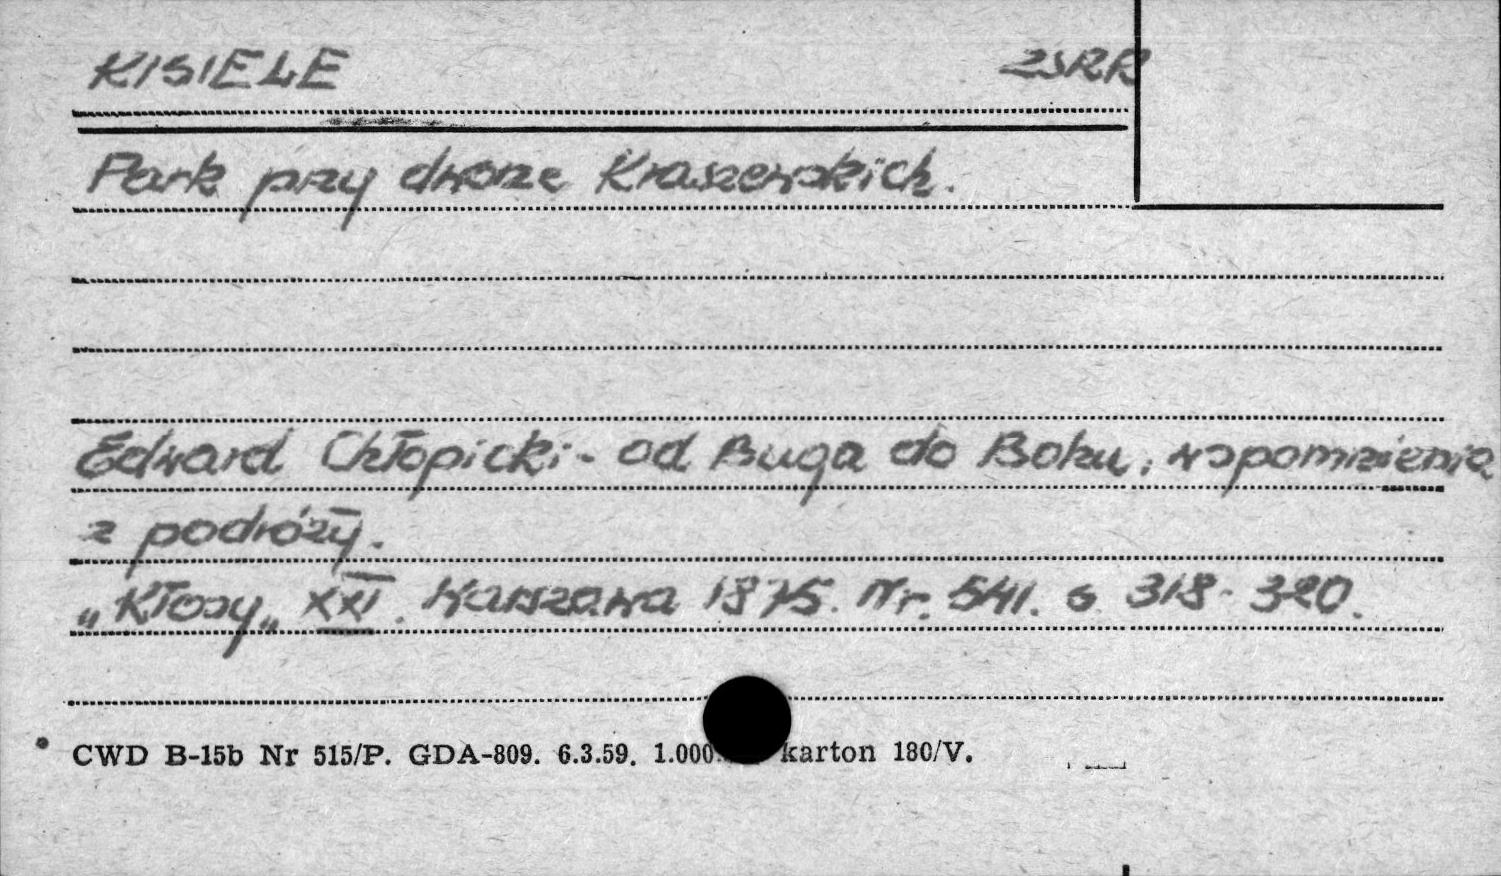 KISIELE ZSRR
Park przy dworze Kraszewskich.
Edward Chłopicki - od Buga do Bohu, wspomnienia
z podróży.
„Kłosy„ XXI. Warszawa 1875. Nr. 541. s 318-320.
CWD B-15b Nr 515/P. GDA-809. 6.3.59. 1.000 karton 180/V.